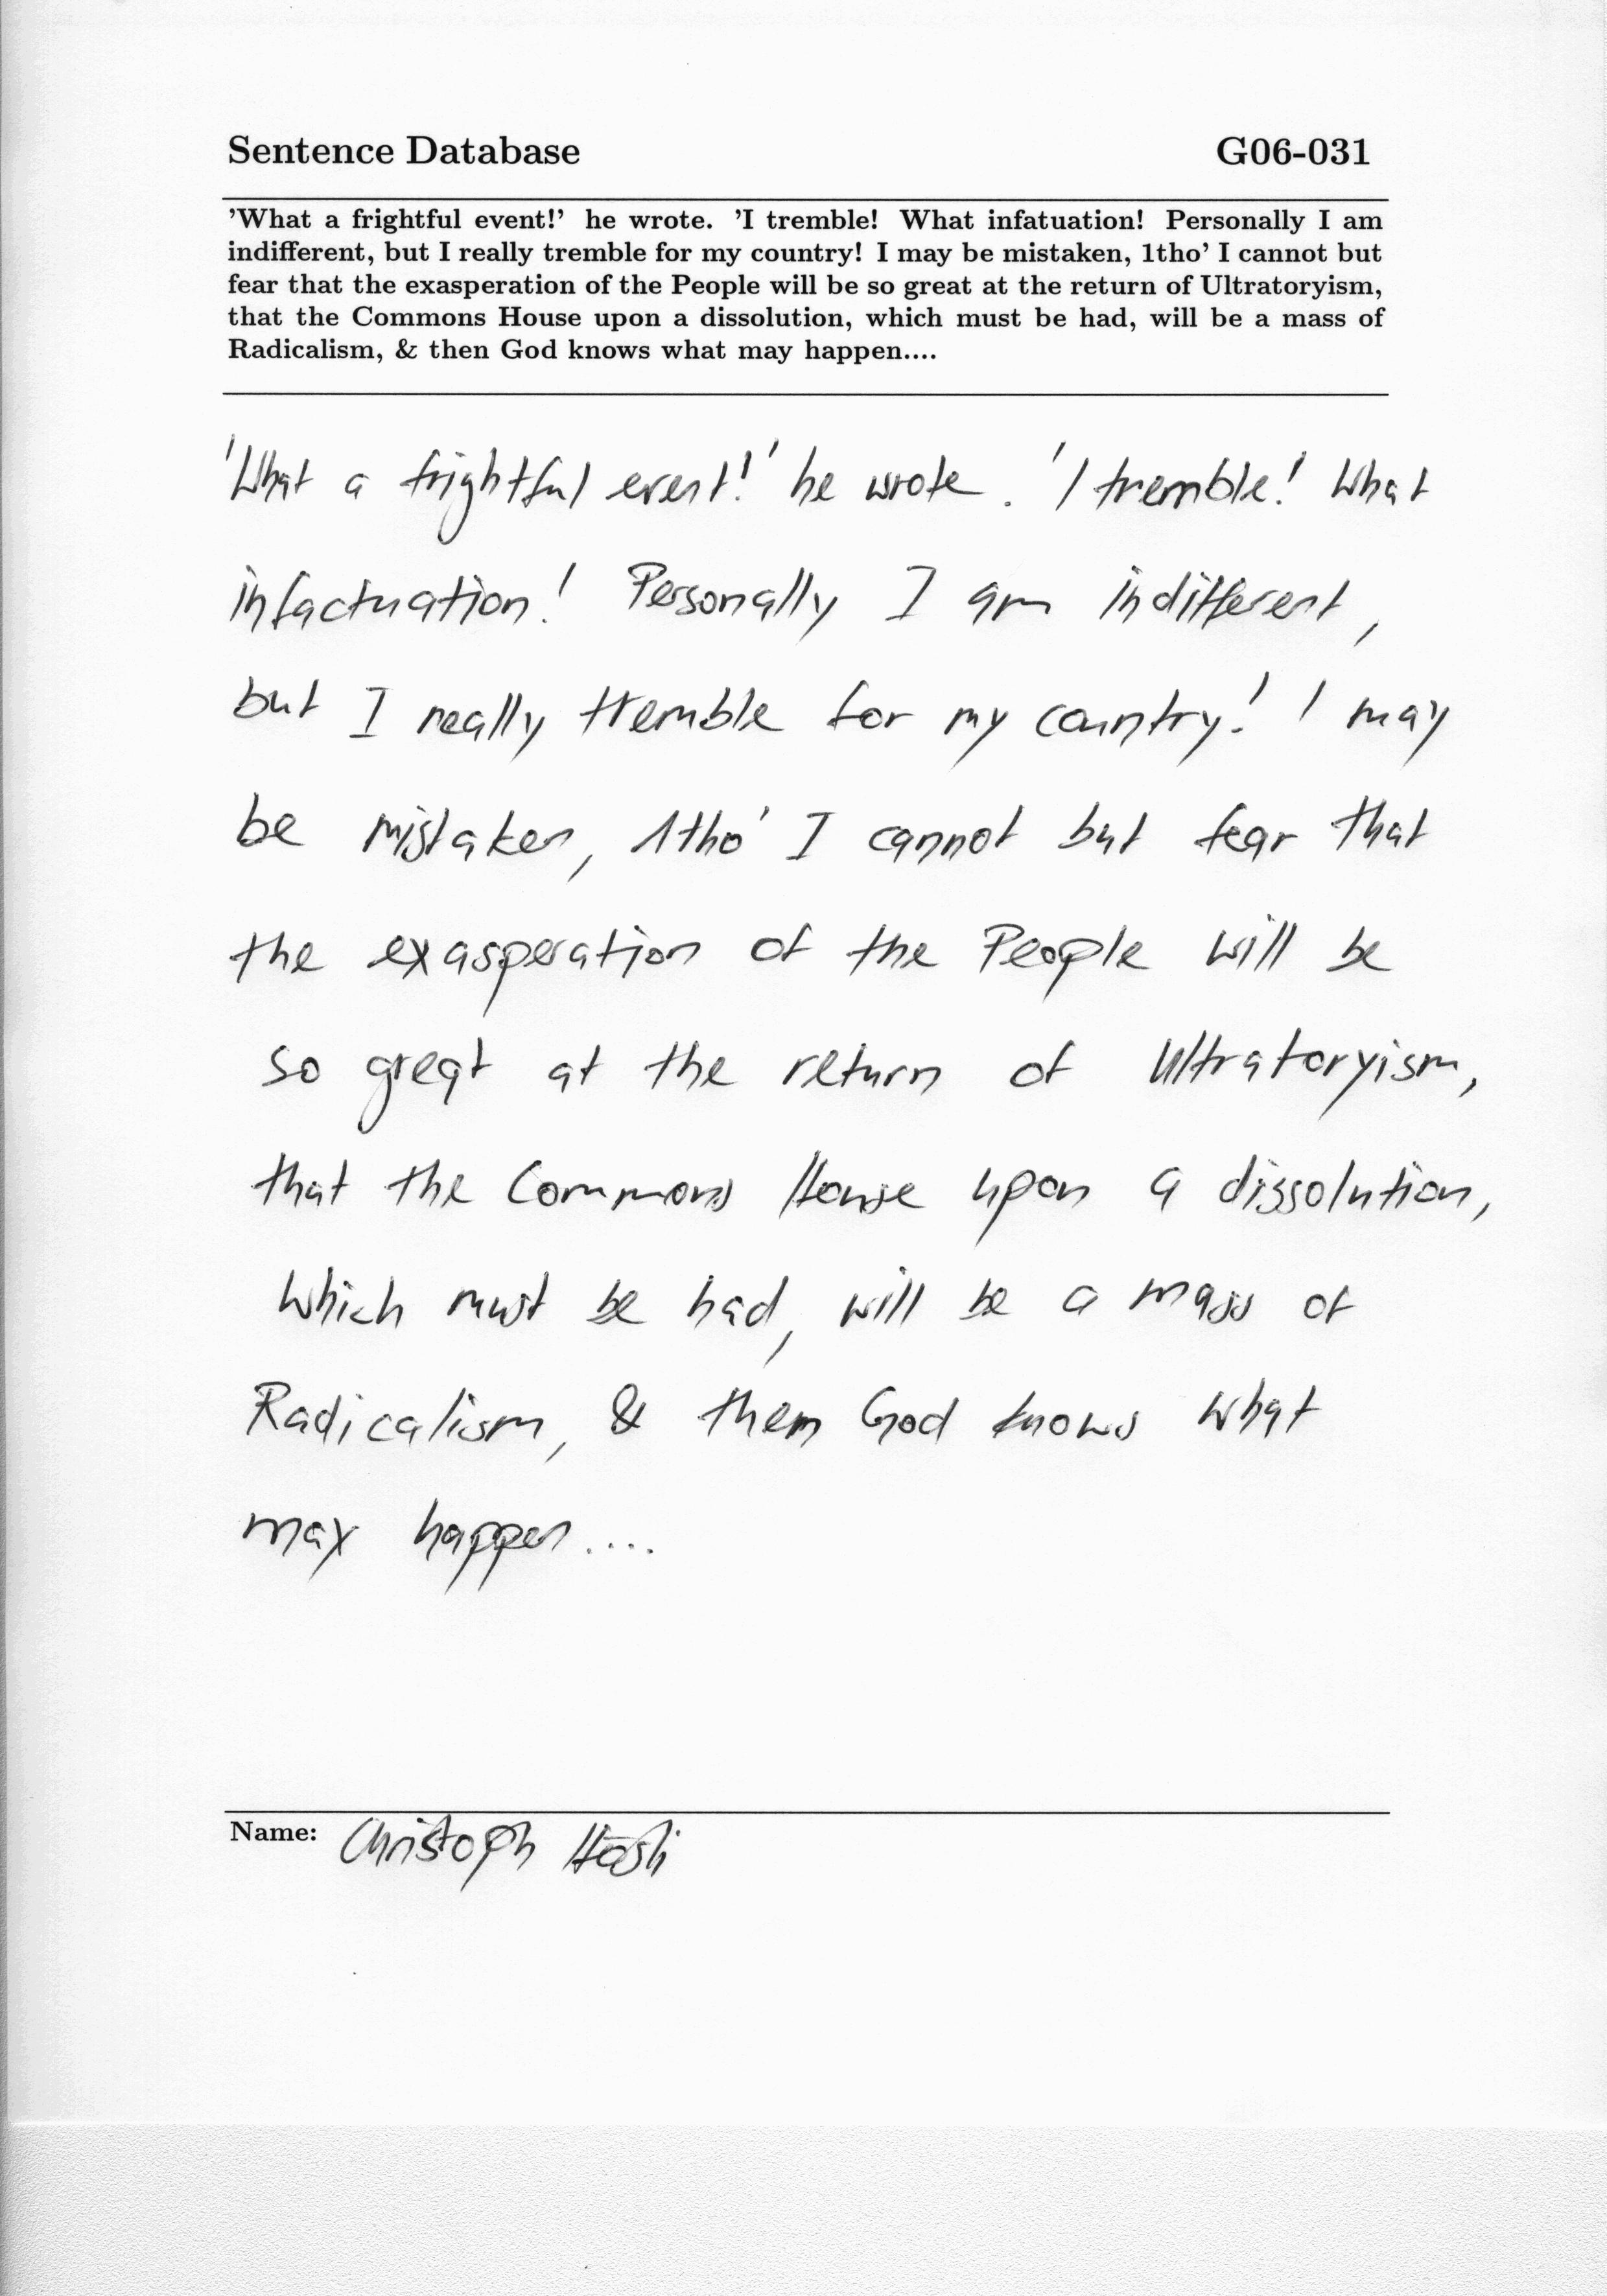 Sentence Database G06-031
'What a frightful event!' he wrote. 'I tremble! What infatuation! Personally I am
indifferent, but I really tremble for my country! I may be mistaken, 1tho' I cannot but
fear that the exasperation of the People will be so great at the return of Ultratoryism,
that the Commons House upon a dissolution, which must be had, will be a mass of
Radicalism, & then God knows what may happen....
'What a frightful event!' he wrote. 'I tremble! What
infactuation! Personally I am indifferent,
but I really tremble for my country! I may
be mistaken, 1tho' I cannot but fear that
the exasperation of the People will be
so great at the return of Ultratoryism,
that the Commons House upon a dissolution,
which must be had, will be a mass of
Radicalism, & them God knows what
may happen....
Name: Christoph